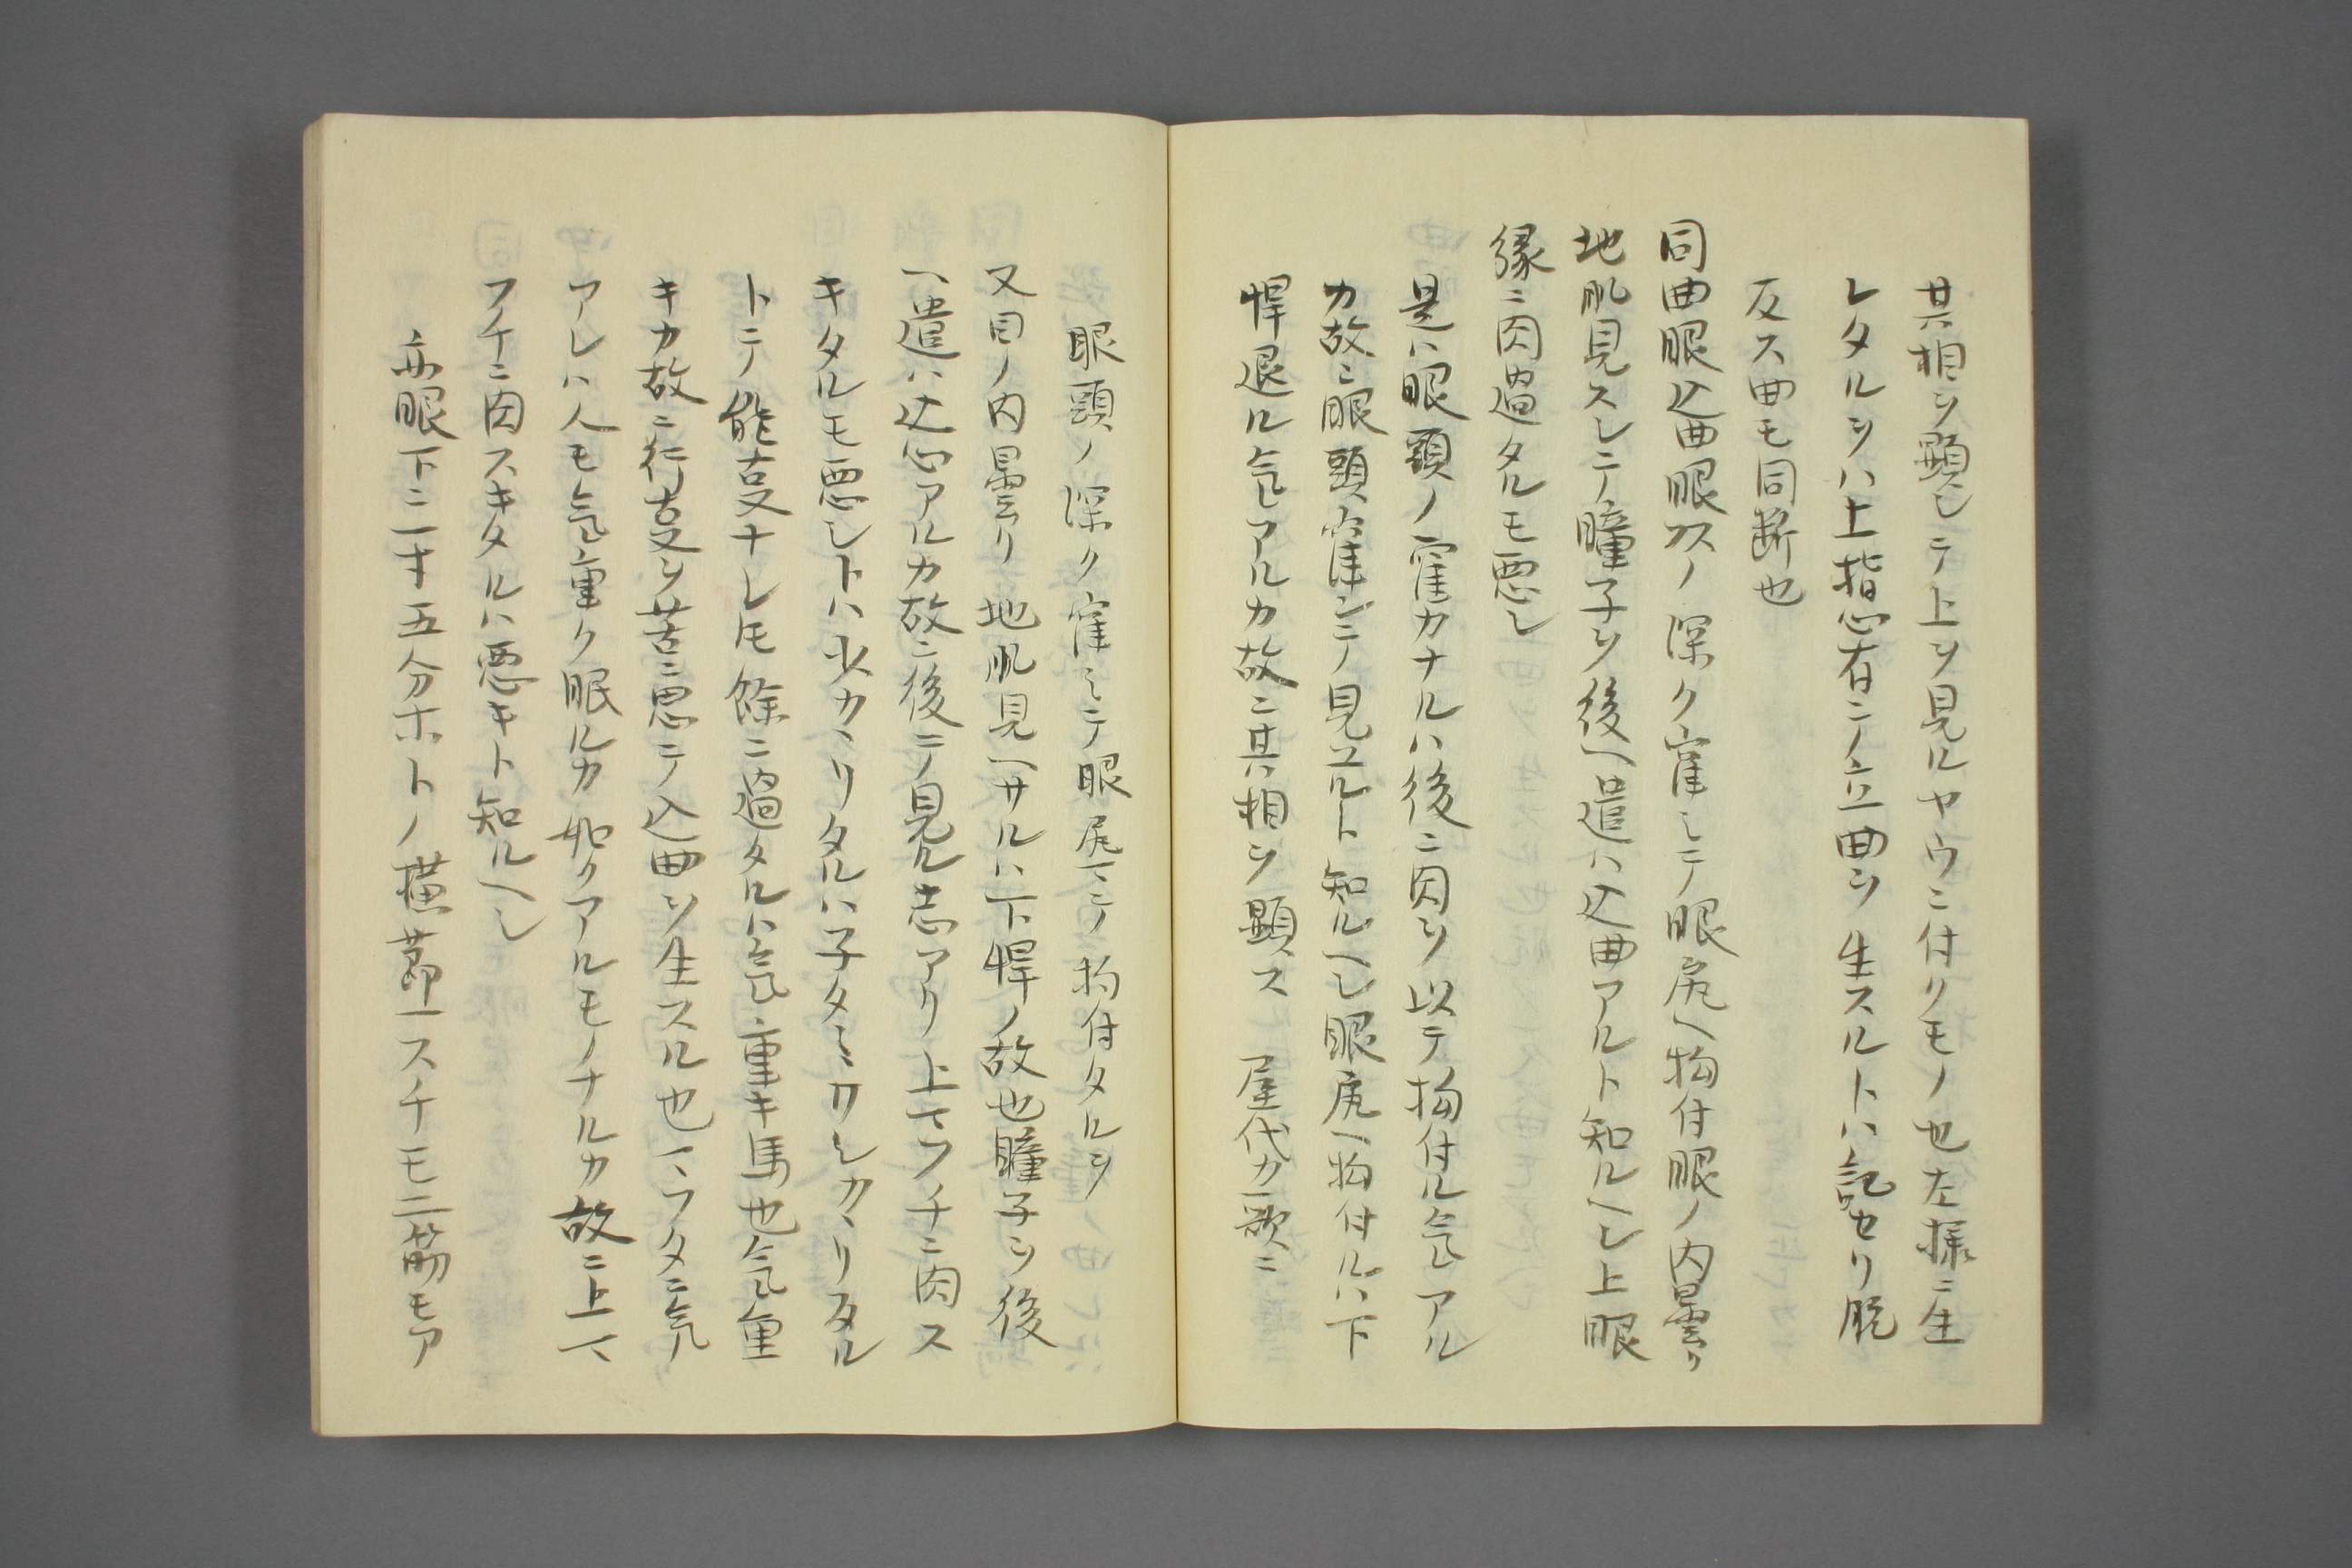 其相ヲ顕シテ上ヲ見ルヤウニ付クモノ也左様ニ生
レタルヲハ上指心有テ立曲ヲ生スルトハ記セリ脱
反ス曲モ同断也
同曲眼込曲眼カスノ深ク窪ミテ眼尻ヘ拘付眼ノ内曇リ
地肌見スシテ瞳子ヲ後ヘ遣ハ込曲アルト知ルヘシ上眼
縁ニ肉過タルモ悪シ
是ハ眼頭ノ窪カナルハ後ニ因ヲ以テ拘付ル気アル
カ故ニ眼頭窪ンテ見ユルト知ルヘシ眼尻ヘ拘付ルハ下
悍退ル気アルカ故ニ其相ヲ顕ス 屋代カ歌ニ
眼頭ノ深ク窪ミテ眼尻マテ拘付タルヲ
又目ノ内曇リ地肌見ヘサルハ下悍ノ故也瞳子ヲ後
ヘ遣ハ込心アルカ故ニ後ヲ見ル志アリ上マフチニ肉ス
キタルモ悪シトハ少カヽリタルハ子タミカシカヽリタル
トテ能支ナレ𪜈餘ニ過タルハ気重キ馬也気重
キカ故ニ行支ヲ苦ニ思テ込曲ヲ生スル也マフタニ気
アレハ人モ気重ク眠ルカ如クアルモノナルカ故ニ上マ
フチニ肉スキタルハ悪キト知ルヘシ
亦眼下ニ一寸五分ホトノ横節一スチモ二筋モア